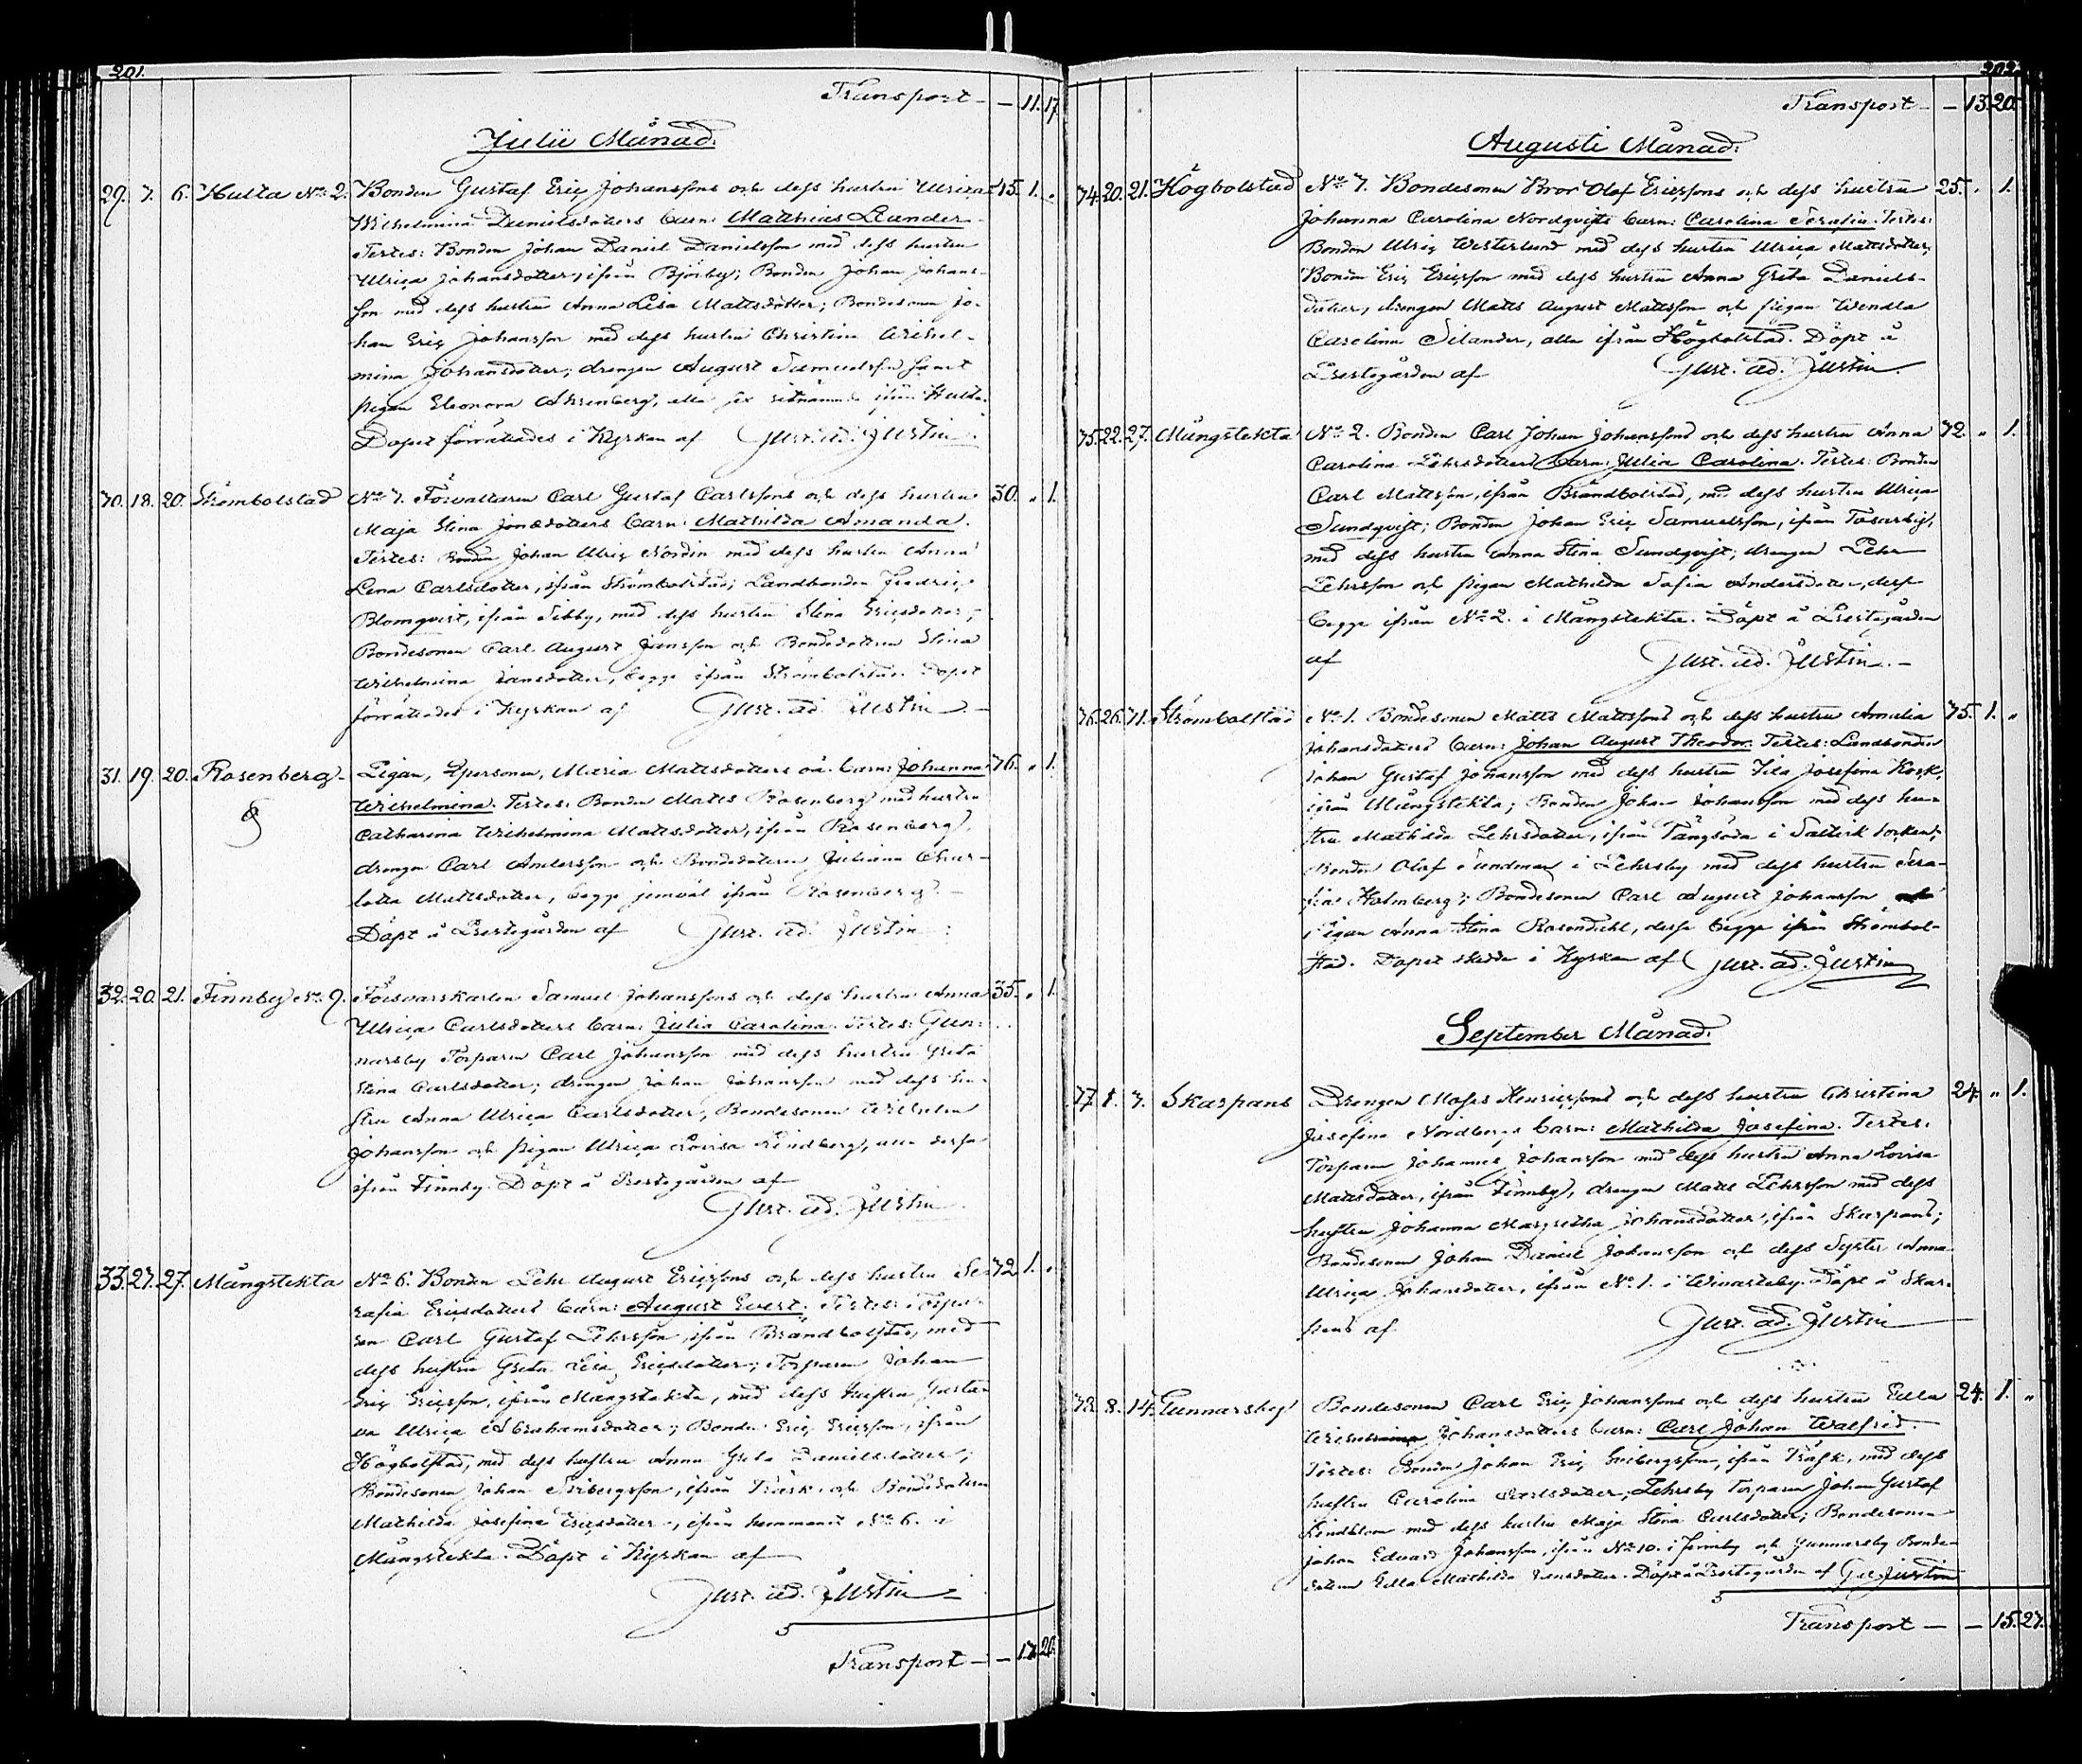 201.
Transport — — 11. 17.
Julii Månad.
29. 7. 6. Hulta No 2. Bonden Gustaf Eriç Johanssons och dess hustru Ulriça 15. 1. „
Wilhelmina Danielsdotters barn: Matthias Leander
Testes: Bonden Johan Daniel Danielsson med dess hustru
Ulriça Johansdotter, ifrån Björby; Bonden Johan Johans-
son med dess hustru Anna Lisa Mattsdotter; Bondesonen Jo-
han Eriç Johansson med dess hustru Christina Wilhel-
mina Johansdotter; drengen August Samuelsson samt
pigan Eleonora Ahrenberg, alla sex ifrån Hulta.
Dopet förrättades i Kyrkan af Gust. ad. Justin.
30. 18. 20. Strömbolstad No 7. Förvaltaren Carl Gustaf Carlssons och dess hustru 30. „ 1.
Maja Stina Jansdotters barn: Mathilda Amanda.
Testes: Bonden Johan Ulriç Nordin med dess hustru Anna
Lena Carlsdotter, ifrån Strömbolstad; Landbonden Fredriç
Blomqvist, ifrån Sibby, med dess hustru Stina Ericsdotter;
Bondesonen Carl August Jansson och Bondedottren Stina
Wilhelmina Jansdotter, begge ifrån Strömbolstad. Dopet
förrättades i Kyrkan af Gust. ad. Justin
31. 19. 20. Rosenberg Pigan, Maria Mattsdotters oä. barn: Johanna 76. „ 1.
Wilhelmina. Testes: Bonden Matts Rosenberg med hustru
Catharina Wilhelmina Mattsdotter, ifrån Rosenberg,
drengen Carl Andersson och Bondedottren Juliana Char-
lotta Mattsdotter, begge jemväl ifrån Rosenberg.
Döpt å Prestegården af Gust. ad. Justin
32. 20. 21. Finnby No 9. Försvarskarlen Samuel Johanssons och dess hustru Anna 35. „ 1.
Ulriça Carlsdotters barn: Julia Carolina. Testes: Gun-
narsby Torparen Carl Johansson med dess hustru Greta
Stina Carlsdotter; drengen Johan Johansson med dess hu-
stru Anna Ulriça Carlsdotter, Bondesonen Wilhelm
Johansson och pigan Ulriça Lovisa Lindberg, alla dessa
ifrån Finnby. Döpt å Prestegården af
Gust. ad. Justin
33. 27. 27. Mångstekta No 6. Bonden Pehr August Ericssons och dess hustru Se- 72. 1. „
rafia Ericsdotters barn: August Evert. Testes: Torpa-
ren Carl Gustaf Pehrsson, ifrån Brändbolstad, med
dess hustru Greta Lisa Ericsdotter; Torparen Johan
Eriç Ericsson, ifrån Mångstekta, med dess hustru Gusta-
va Ulriça Abrahamsdotter; Bonden Eriç Ericsson, ifrån
Högbolstad, med dess hustru Anna Greta Danielsdotter;
Bondesonen Johan Eribergsson, ifrån Träsk och Bondedottren
Mathilda Josefina Ericsdotter, ifrån hemmanet No 6. i
Mångstekta. Döpt i Kyrkan af
Gust. ad. Justin
Transport — — 13. 20.
202
Transport — — 13. 20.
Augusti Månad.
74. 20. 21. Högbolstad No 7. Bondesonen Bror Olof Ericssons och dess hustru 25. „ 1.
Johanna Carolina Nordqvists barn: Carolina Serafia. Testes:
Bonden Ulriç Westerlund med dess hustru Ulriça Mattsdotter,
Bonden Eriç Ericsson med dess hustru Anna Greta Daniels-
dotter, drengen Matts August Mattsson och pigan Wendla
Carolina Silander, alla ifrån Högbolstad. Döpt å
Prestegården af Gust. ad. Justin.
75. 22. 27. Mångstekta No 2. Bonden Carl Johan Johanssons och dess hustru Anna 72. „ 1.
Carolina Pehrsdotters barn: Julia Carolina. Testes: Bonden
Carl Mattsson, ifrån Brändbolstad, med dess hustru Ulriça
Sundqvist; Bonden Johan Eriç Samuelsson, ifrån Tosarby,
med dess hustru Anna Stina Sundqvist; drengen Pehr
Pehrsson och pigan Mathilda Sofia Andersdotter, desse
begge ifrån No 2. i Mångstekta. Döpt å Prestegården
af Gust. ad. Justin.
76. 26. 71. Strömbolstad No 1. Bondesonen Matts Mattssons och dess hustru Amalia 75. 1. „
Johansdotters barn: Johan August Theodor. Testes: Landbonden
Johan Gustaf Johansson med dess hustru Josefina Kock,
ifrån Mångstekta; Bonden Johan Johansson med dess hu-
stru Mathilda Pehrsdotter, ifrån Tängsöda i Saltvik socken;
Bonden Olof Sundman i Pehrsby med dess hustru Sera-
fia Holmberg; Bondesonen Carl August Johansson och
Pigan Anna Stina Rosendahl, desse begge ifrån Strömbol-
stad. Dopet skedde i Kyrkan af Gust. ad. Justin
September Månad.
77. 1. 7. Skarpans Drengen Moses Henricssons och dess hustru Christina 24. „ 1.
Josefina Nordbergs barn: Mathilda Josefina. Testes:
Torparen Johannes Johansson med dess hustru Anna Lovisa
Mattsdotter, ifrån Finnby, drengen Matts Pehrsson med dess
hustru Johanna Margretha Johansdotter, ifrån Skarpans;
Bondesonen Johan Daniel Johansson och dess Syster Anna
Ulriça Johansdotter, ifrån No 1. i Winarsby. Döpt å Skar-
pans af Gust. ad. Justin
78. 8. 14. Gunnarsby Bondesonen Carl Eriç Johanssons och dess hustru Edla 24. 1. „
Johansdotters barn: Carl Johan Walfrid.
Testes: Bonden Johan Eriç Eribergsson, ifrån Träsk, med dess
hustru Carolina Carlsdotter; Pehrsby Torparen Johan Gustaf
Lindblom med dess hustru Maja Stina Carlsdotter; Bondesonen
Johan Edvard Johansson, ifrån No 10. i Finnby och Gunnarsby Bonde-
dottren Edla Mathilda Jansdotter. Döpt å Prestegården af G. ad. Justin
Transport — — 15. 27.